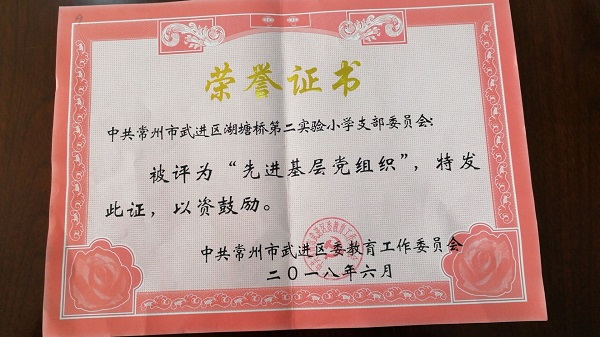 荣誉证书
中共常州市武进区湖塘桥第二实验小学支部委员会:
被评为“先进基层党组织”,特发
此证,以资鼓励。
中共常州市武进区委教育工作委员会
二〇一八年六月